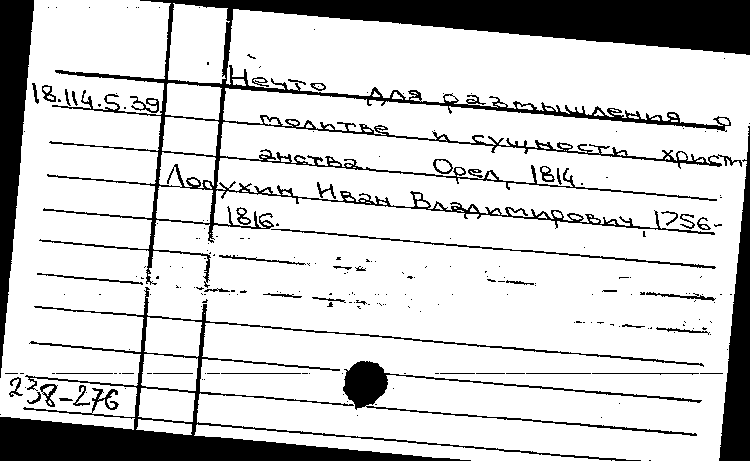 Нечто для размышления о
18.114.5.39
молитве и сущности христи
анства. Орел, 1814.
Лопухин, Иван Владимирович, 1756-
1816.
238-276